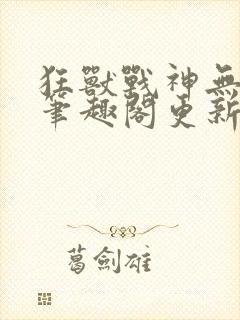 狂獸戰神無
筆趣閣更新
葛劍雄